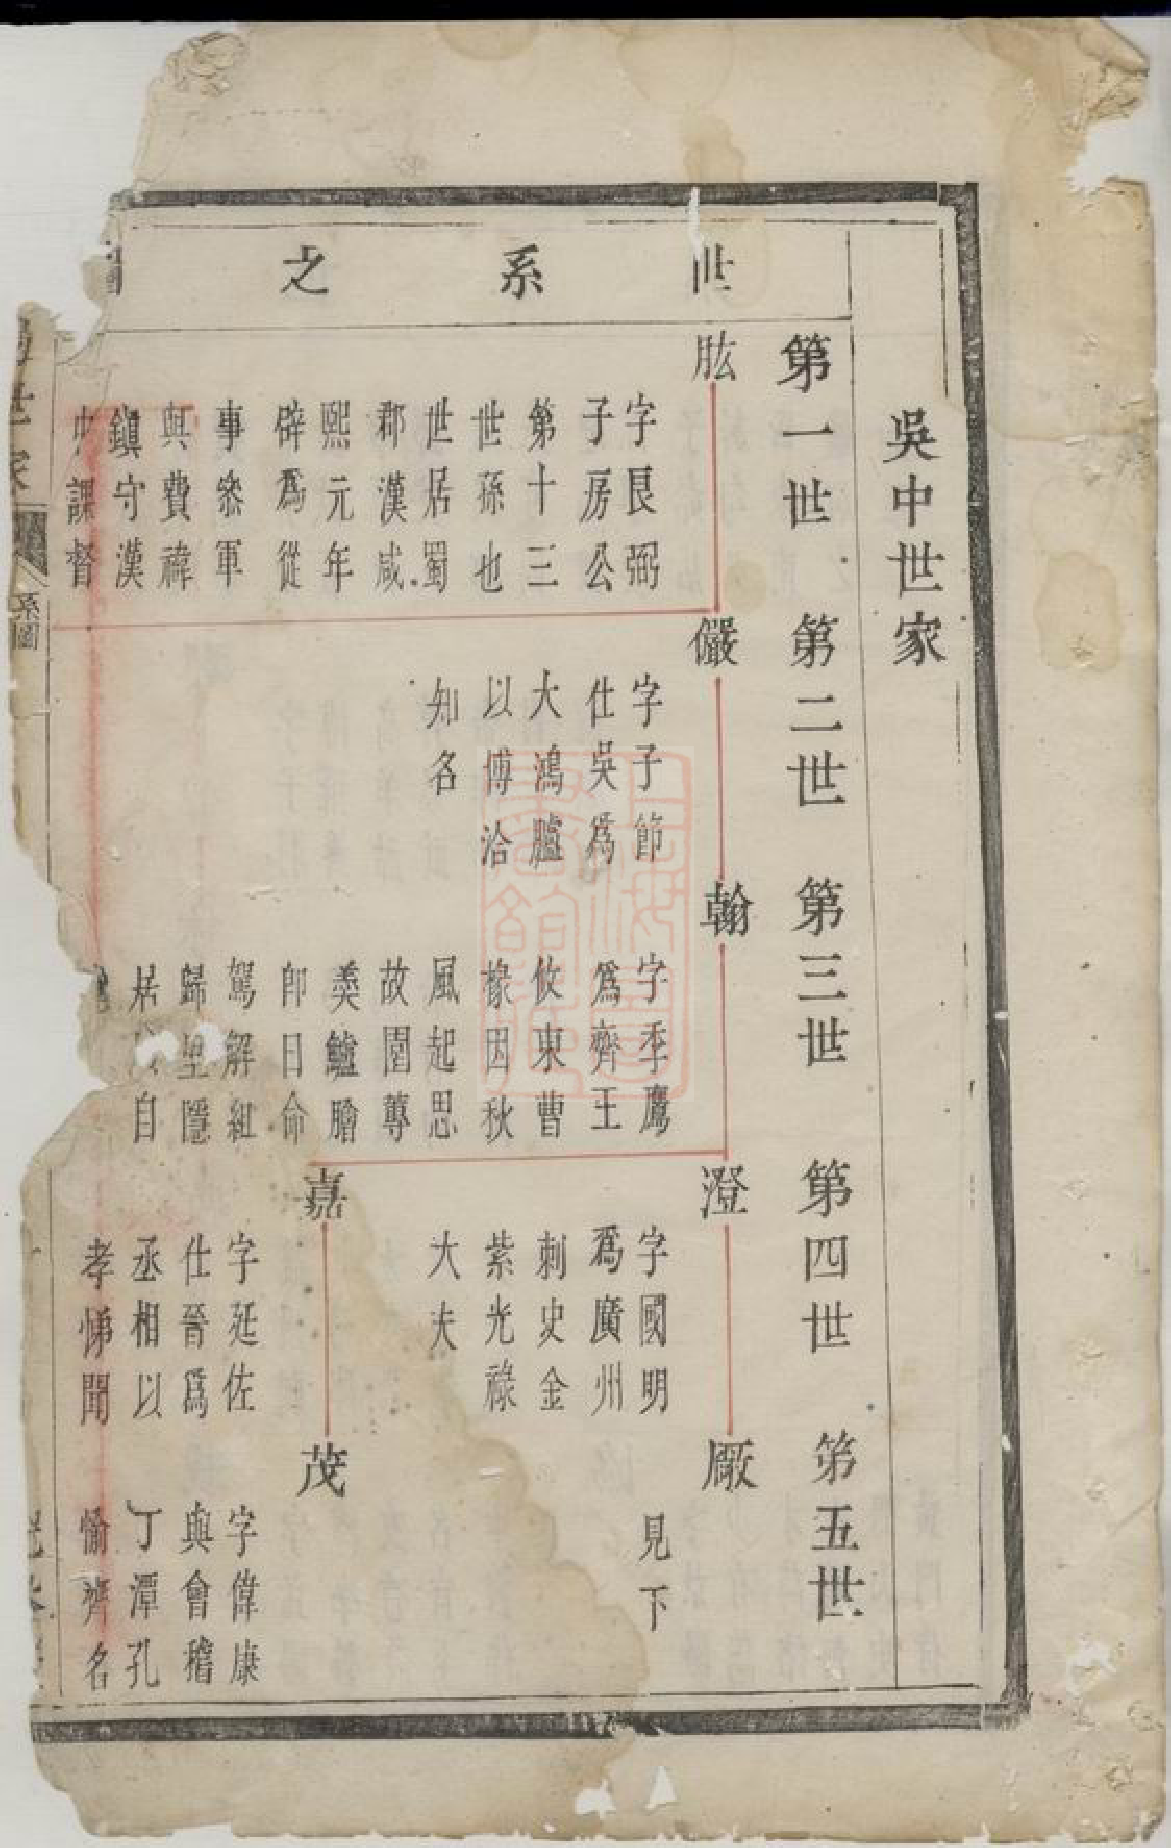 吳中世家
世系之圖
第一世
第二世
第三世
第四世
第五世
肱
字艮弼
子房公
第十三
世孫也
世居蜀
郡漢咸
熙元年
辟爲從
事叅軍
與費禕
鎮守漢
中課督
儼
字子節
仕吳爲
大鴻臚
以博洽
知名
翰
字季鷹
爲齊王
攸東曹
椽因秋
風起思
故園蓴
羹鱸膾
卽日命
駕解組
歸里隱
居自
澄
字國明
爲廣州
刺史金
紫光祿
大夫
嘉
字延佐
仕晉爲
丞相以
孝悌聞
厰
見下
茂
字偉康
與會稽
丁潭孔
愉齊名
世家
系圖